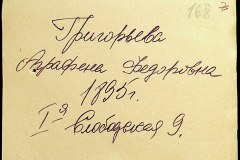 168
Григорьева
Аграфена Федоровна
1895 г.
I я Слободская 9.